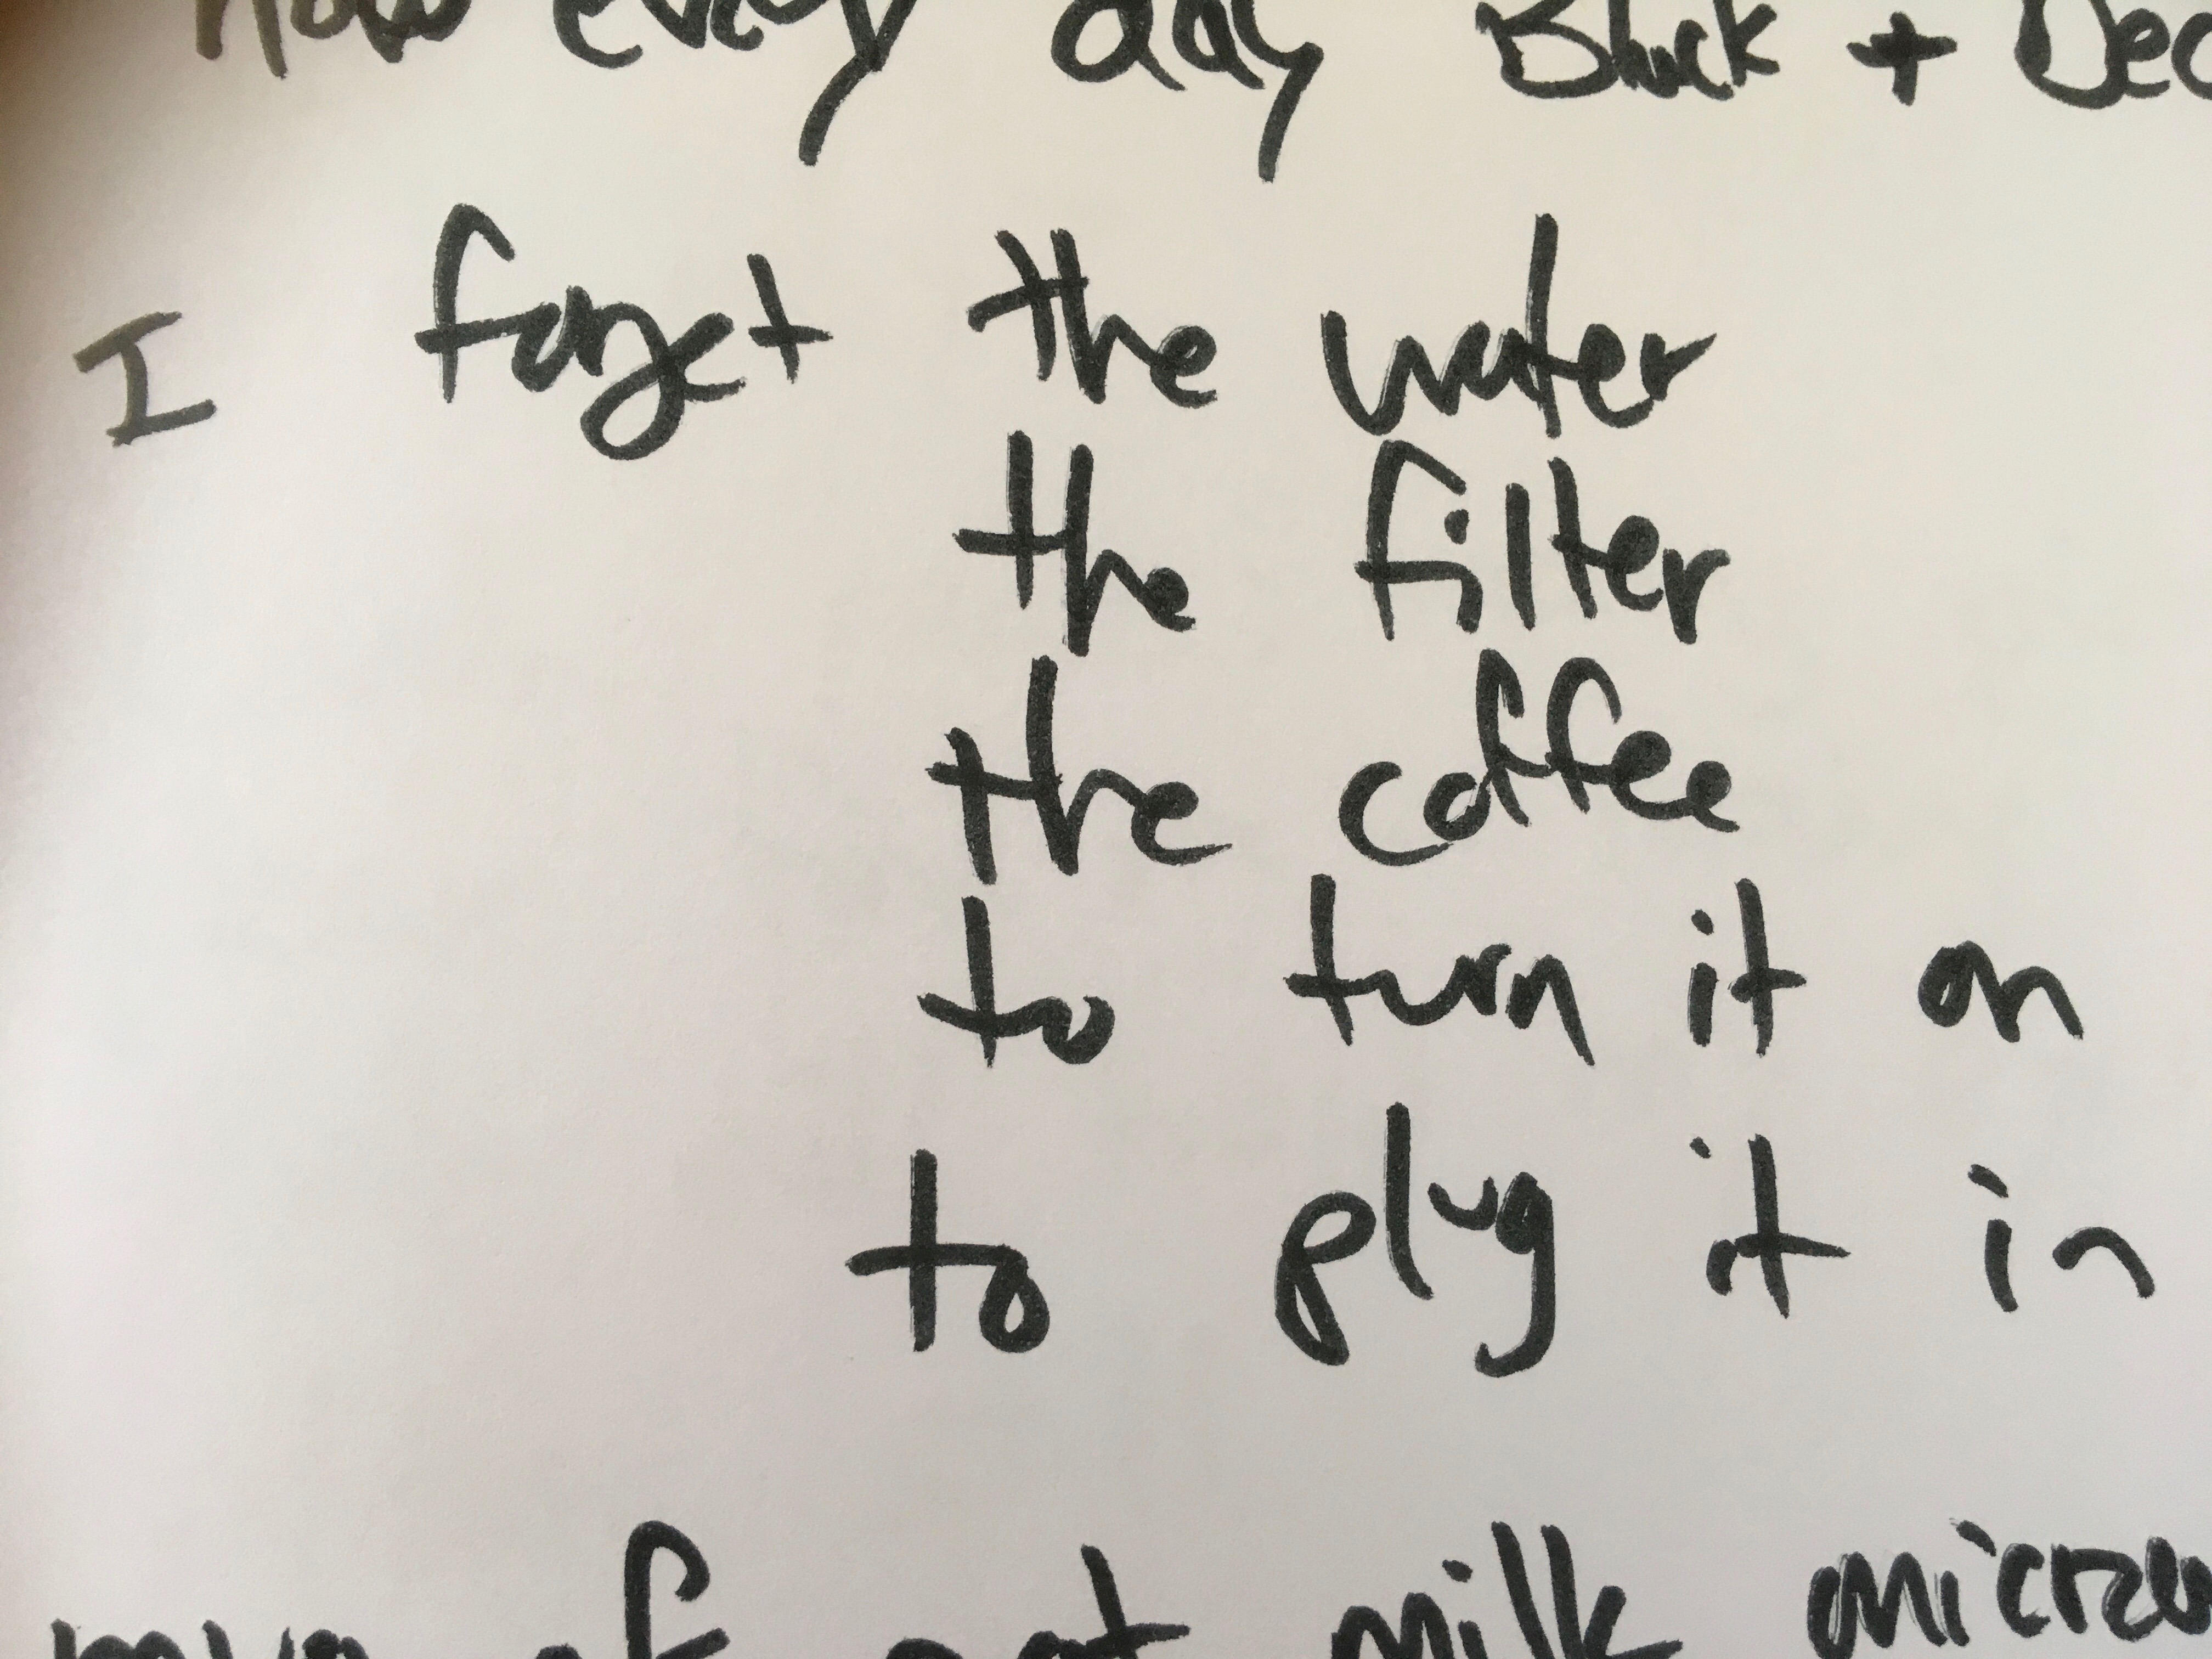 Now every day Black + Dec
I forget the water
the filter
the coffee
to turn it on
to plug it in
mug of oat milk micro